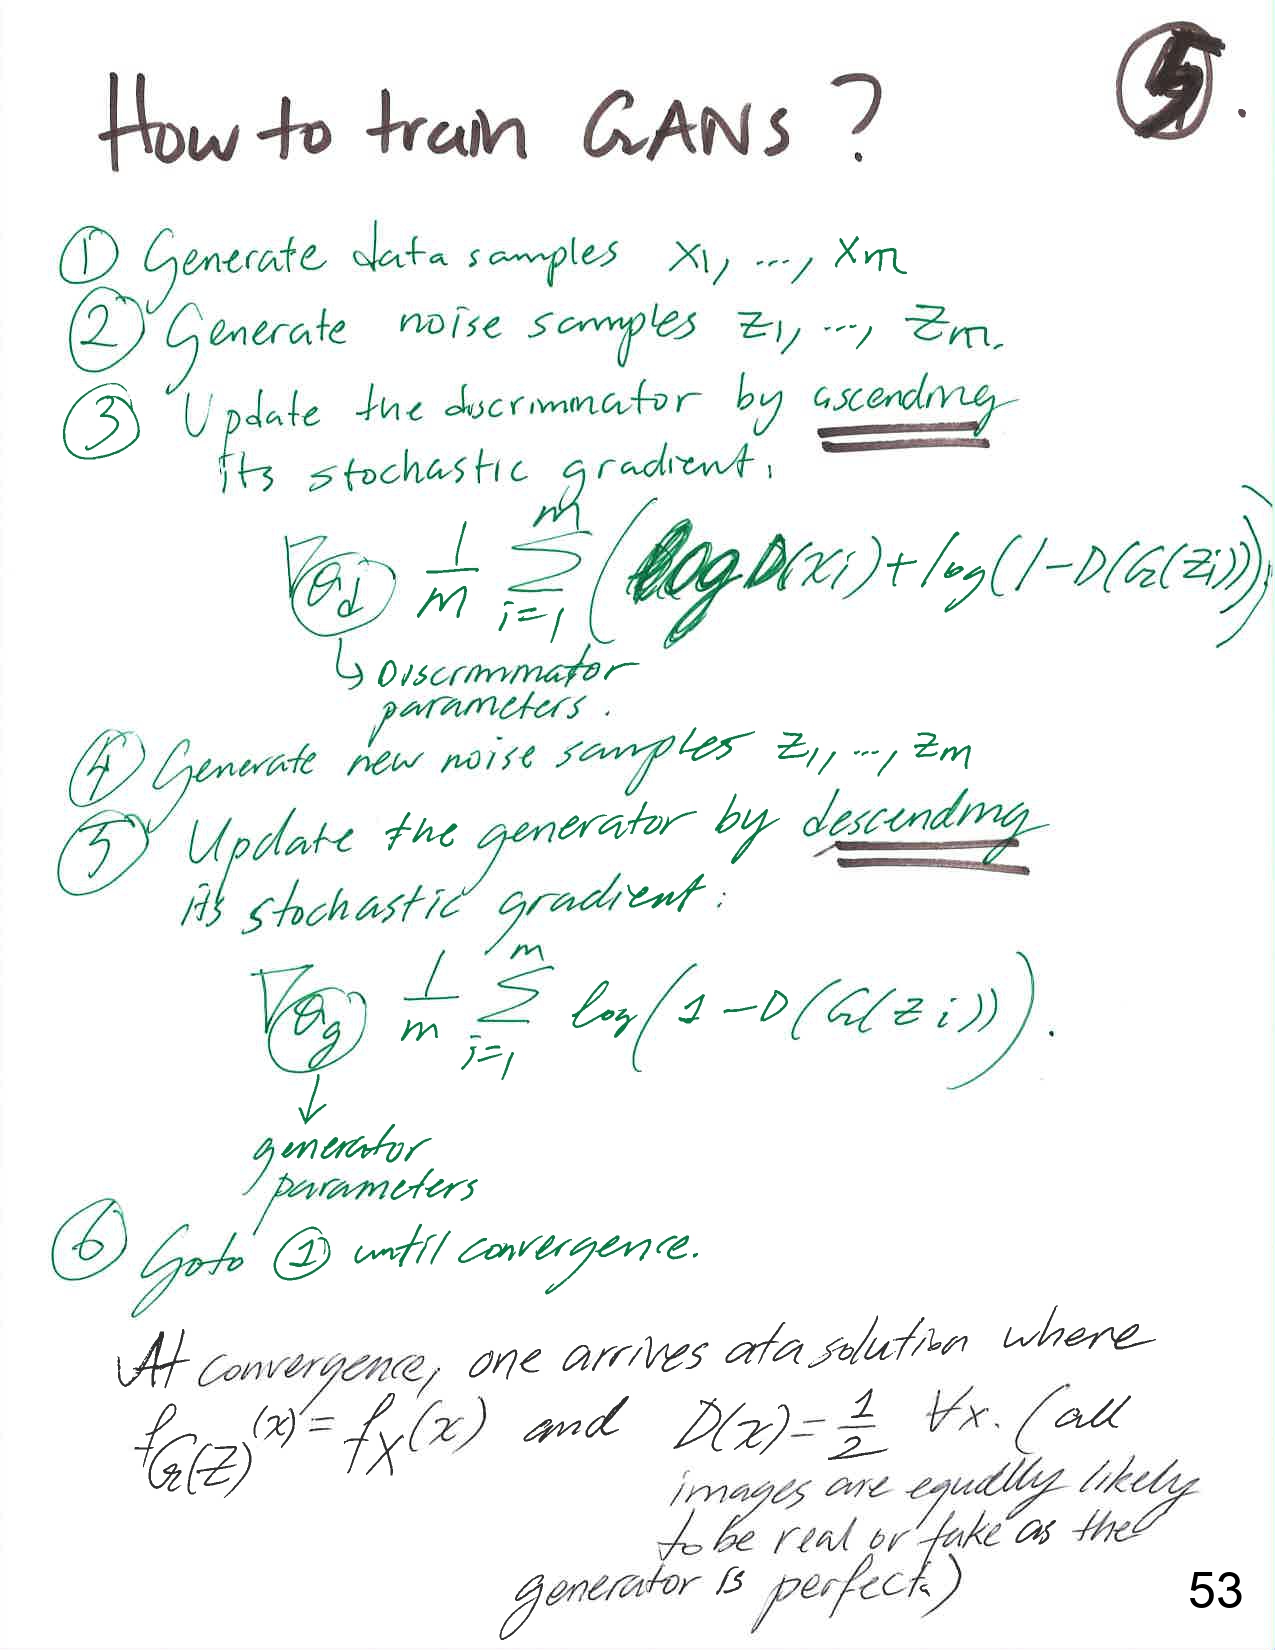 How to train GANs?
5.
① Generate data samples x1, ..., xm
② Generate noise samples z1, ..., zm.
③ Update the discriminator by ascending
its stochastic gradient:
∇θd 1/m Σ_{i=1}^{m} (log D(xi) + log(1-D(G(zi))))
↳ Discriminator
parameters.
④ Generate new noise samples z1, ..., zm
⑤ Update the generator by descending
its stochastic gradient:
∇θg 1/m Σ_{i=1}^{m} log(1-D(G(zi))).
↓
generator
parameters
⑥ Goto ① until convergence.
At convergence, one arrives at a solution where
f_{G(Z)}(x) = f_X(x) and D(x) = 1/2 ∀x. (all
images are equally likely
to be real or fake as the
generator is perfect.)
53